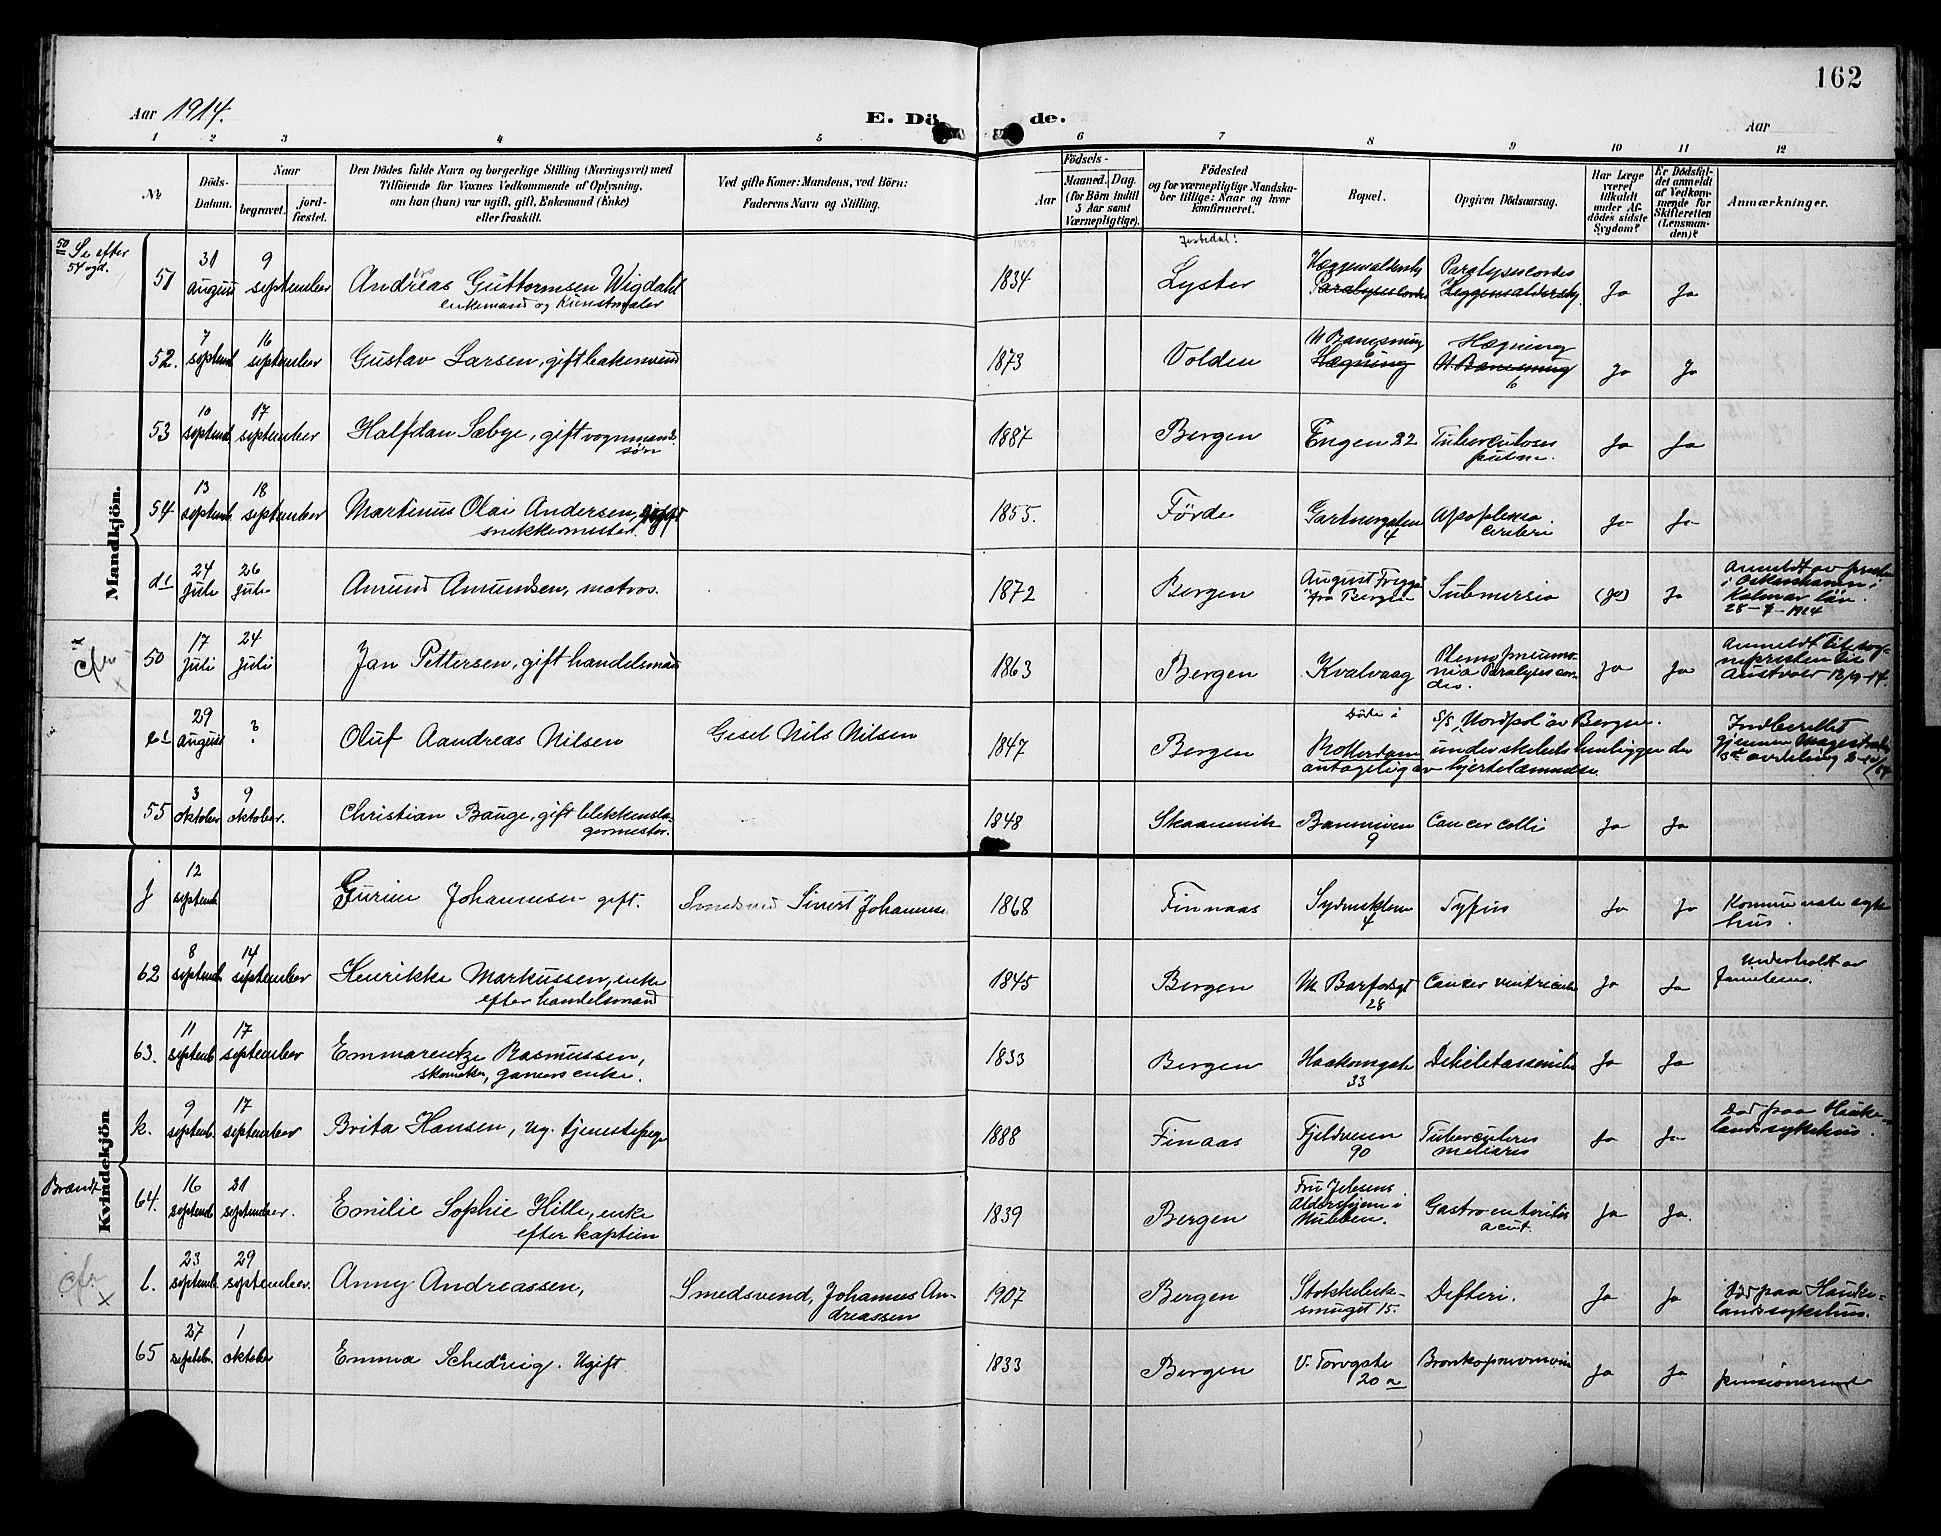 162
Aar 1914.
E. Dö de.
Aar
1 2 3 4 5 6 7 8 9 10 11 12
№
Döds-Datum.
Naar
begravet.
jordfæstet.
Den Dödes fulde Navn og borgerlige Stilling (Næringsvei) med
Tilföiende for Voxnes Vedkommende af Oplysning,
om han (hun) var ugift, gift, Enkemand (Enke)
eller fraskilt.
Ved gifte Koner: Mandens, ved Börn:
Faderens Navn og Stilling.
Födsels-
Aar
Maaned. Dag.
(for Börn indtil
5 Aar samt
Værnepligtige).
Födested
og for værnepligtige Mandska-
ber tillige: Naar og hvor
konfirmeret.
Bopæl.
Opgiven Dödsaarsag.
Har Læge
været
tilkaldt
under Af-
dödes sidste
Sygdom?
Er Dödsfal-
det anmeldt
af Vedkom-
mende for
Skifteretten
(Lensman-
den)?
Anmærkninger.
Mandkjön.
50 Se efter
54 ogd.
51 31 august 9 september Andreas Guttormsen Wigdahl
enkemand og Kunstmaler
1834 Jostedal! Lyster
Paralysis cordis
Ja Ja
52. 7 septemb 16 september Gustav Larsen, gift bakersvend 1873 Volden
Hægning
Ja Ja
53 10 septemb 17 september Halfdan Sæbye, gift vognmands
søn
1887 Bergen Engen 22 Tuberculosis
pulm.
Ja Ja
54 13 septemb. 18 september Martinus Olai Andersen, gift
snekkermester.
1855. Förde Gartnergaten
4
Apoplexia
cerebri
Ja Ja
d1 24 Juli 26 Juli Amund Amundsen, matros. 1872 Bergen
fra Bergen
Submersio (Ja) Ja
Anmeldt av
i Oskarshavn i
Kalmar län.
28-7-1914
cfr x
50 17 Juli 24 Juli Jan Pettersen, gift handelsmand 1863 Bergen Kvalvaag
pneumo-
nia Paralysis cor-
dis.
Ja Ja
Anmeldt til sog-
nepresten til
Austvoll 12/9-14.
e1 29 august ? Oluf Aandreas Nilsen Gisel Nils Nilsen 1847 Bergen
Döde i S/S Nordpol av Bergen.
Rotterdam under skibets henliggen der
antagelig av hjertelammelse.
Indberettet
gjennem Magistratens
55 3 oktober 9 oktober. Christian Bauge, gift blikkensla-
germester.
1848 Skaanevik
9
Cancer colli Ja Ja
Kvindekjön
j 12 septemb. Gurine Johannesen gift. Smedsvend Sivert Johannesen 1868 Finnaas
4
Tyfus Ja Ja
Kommunale syke
hus.
62 8 septemb 14 september Henrikke Markussen, enke
efter handelsmand
1845 Bergen
28
Cancer ventriculi Ja Ja
Underholdt av
familien.
63. 11 septemb. 17 september Emmarentze Rasmussen,
skomaker, garvers enke.
1833 Bergen Haakonsgate
33
Debilitas senilis Ja Ja
k. 9 septemb. 17 september Brita Hansen, ug. tjenestepige 1888 Finaas Fjeldveien
90
Tuberculosis
miliaris
Ja Ja
Död paa Hauke-
landssykehus.
Brandt
64. 16 septemb. 21 september. Emilie Sophie Hille, enke
efter kaptein
1839 Bergen
Fru Jebsens
Aldershjem i
Nubben.
Gastroenteritis
acut.
Ja Ja.
cfr x
l. 23 septemb. 29 september. Anny Andreassen, Smedsvend, Johannes An-
dreassen
1907 Bergen Stokkebæk-
smuget 15.
Difteri. Ja Ja
Död paa Hauke-
landssykehus.
65 27 septbr. 1 oktober Emma Schedvig. Ugift 1833 Bergen V. Torvgate
20 a
Bronkopneumoni Ja Ja